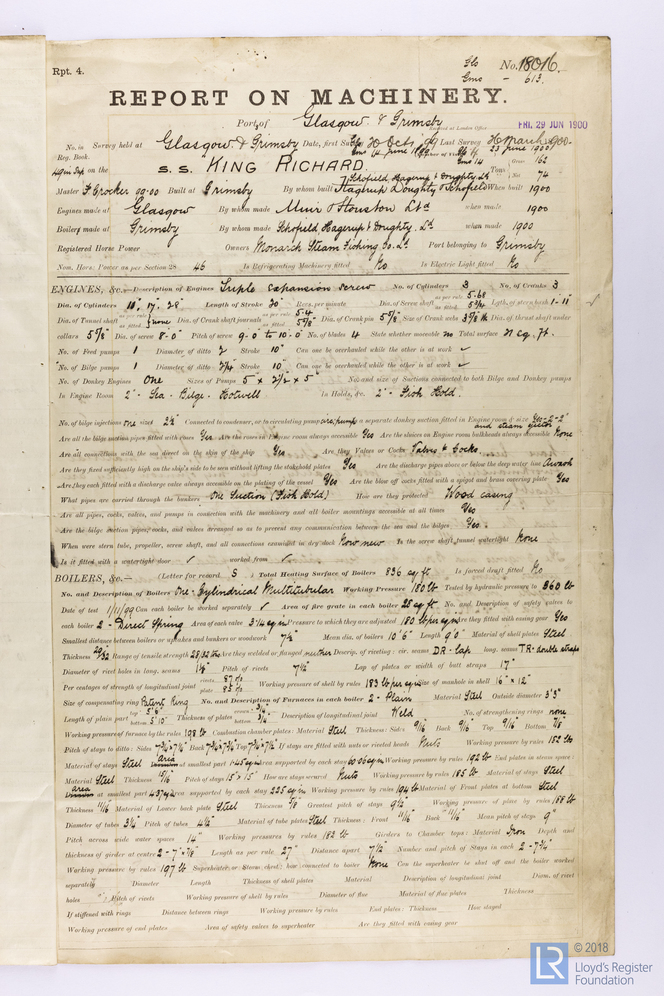 Rpt. 4.
Gls No. 18016.
Gms - 613.
REPORT ON MACHINERY.
Port of Glasgow & Grimsby
Received at London Office FRI. 29 JUN 1900
No. in Reg. Book. Survey held at Glasgow & Grimsby Date, first Survey Last Survey
49 in Sup on the S.S. KING RICHARD Tons Gross 162 Net 74
Master F. Crocker 99.00 Built at Grimsby By whom built Schofield Hagerup & Doughty Ld When built 1900
Engines made at Glasgow By whom made Muir & Houston Ltd when made 1900
Boilers made at Grimsby By whom made Schofield, Hagerup & Doughty Ld. when made 1900
Registered Horse Power Owners Monarch Steam Fishing Co. Ld Port belonging to Grimsby
Nom. Horse Power as per Section 28 46 Is Refrigerating Machinery fitted No Is Electric Light fitted No
ENGINES, &c.— Description of Engines Triple expansion screw No. of Cylinders 3 No. of Cranks 3
Dia. of Cylinders 10", 17", 28" Length of Stroke 20" Revs. per minute Dia. of Screw shaft as per rule 5.68 as fitted 5 3/4 Lgth. of stern bush 1-11"
Dia. of Tunnel shaft as per rule as fitted } none Dia. of Crank shaft journals as per rule 5.4 as fitted 5 5/8" Dia. of Crank pin 5 7/8" Size of Crank webs 3 7/8 th Dia. of thrust shaft under
collars 5 5/8" Dia. of screw 8-0" Pitch of screw 9-0 to 10-0" No. of blades 4 State whether moveable no Total surface 21 sq. ft.
No. of Feed pumps 1 Diameter of ditto 2 Stroke 10" Can one be overhauled while the other is at work ✓
No. of Bilge pumps 1 Diameter of ditto 2 1/4 Stroke 10" Can one be overhauled while the other is at work ✓
No. of Donkey Engines One Sizes of Pumps 5" x 2 1/2 x 5" No. and size of Suctions connected to both Bilge and Donkey pumps
In Engine Room 2" - Sea - Bilge - Hotwell In Holds, &c. 2" - Fish Hold.
No. of bilge injections one sizes 2 1/2" Connected to condenser, or to circulating pump circ. pump Is a separate donkey suction fitted in Engine room & size Yes-2-2" and steam ejector
Are all the bilge suction pipes fitted with roses Yes Are the roses in Engine room always accessible Yes Are the sluices on Engine room bulkheads always accessible None
Are all connections with the sea direct on the skin of the ship Yes Are they Valves or Cocks Valves & Cocks
Are they fixed sufficiently high on the ship's side to be seen without lifting the stokehold plates Yes Are the discharge pipes above or below the deep water line Awash
Are they each fitted with a discharge valve always accessible on the plating of the vessel Yes Are the blow off cocks fitted with a spigot and brass covering plate Yes
What pipes are carried through the bunkers One Suction (Fish Hold) How are they protected Wood casing
Are all pipes, cocks, valves, and pumps in connection with the machinery and all boiler mountings accessible at all times Yes
Are the bilge suction pipes, cocks, and valves arranged so as to prevent any communication between the sea and the bilges Yes
When were stern tube, propeller, screw shaft, and all connections examined in dry dock Now new Is the screw shaft tunnel watertight None
Is it fitted with a watertight door ✓ worked from ✓
BOILERS, &c.— (Letter for record S ) Total Heating Surface of Boilers 836 sq ft Is forced draft fitted No
No. and Description of Boilers One-Cylindrical Multitubular Working Pressure 180 lb Tested by hydraulic pressure to 360 lb
Date of test 1/11/99 Can each boiler be worked separately ✓ Area of fire grate in each boiler 28 sq ft No. and Description of safety valves to
each boiler 2 - Direct Spring Area of each valve 3.14 sq in Pressure to which they are adjusted 180 lb per sq in Are they fitted with easing gear Yes
Smallest distance between boilers or uptakes and bunkers or woodwork 7 1/2" Mean dia. of boilers 10' 6" Length 9' 0" Material of shell plates Steel
Thickness 29/32 Range of tensile strength 28/32 Are they welded or flanged neither Descrip. of riveting: cir. seams DR-lap long. seams TR-double straps
Diameter of rivet holes in long. seams 1 1/8" Pitch of rivets 7 1/2" Lap of plates or width of butt straps 17"
Per centages of strength of longitudinal joint rivets 87.0 plate 85.0 Working pressure of shell by rules 183 lb per sq in Size of manhole in shell 16" x 12"
Size of compensating ring Patent Ring No. and Description of Furnaces in each boiler 2 - Plain Material Steel Outside diameter 3' 3"
Length of plain part top 5' 6" bottom 5' 10" Thickness of plates crown 3/4 bottom 3/4 Description of longitudinal joint Weld No. of strengthening rings none
Working pressure of furnace by the rules 198 lb Combustion chamber plates: Material Steel Thickness: Sides 9/16 Back 9/16 Top 9/16 Bottom 7/8
Pitch of stays to ditto: Sides 7 3/4 x 7 1/2" Back 7 3/4 x 7 3/4 Top 7 3/4 x 7 1/2" If stays are fitted with nuts or riveted heads Nuts Working pressure by rules 182 lb
Material of stays Steel area at smallest part 1.45 sq in Area supported by each stay 60.06 sq in Working pressure by rules 192 lb End plates in steam space:
Material Steel Thickness 15/16 Pitch of stays 15" x 15" How are stays secured Nuts Working pressure by rules 185 lb Material of stays Steel
area at smallest part 4.37 sq in Area supported by each stay 225 sq in Working pressure by rules 194 lb Material of Front plates at bottom Steel
Thickness 11/16 Material of Lower back plate Steel Thickness 5/8 Greatest pitch of stays 9 1/2" Working pressure of plate by rules 188 lb
Diameter of tubes 3 1/4 Pitch of tubes 4 1/2" Material of tube plates Steel Thickness: Front 11/16 Back 11/16 Mean pitch of stays 9"
Pitch across wide water spaces 14" Working pressures by rules 182 lb Girders to Chamber tops: Material Iron Depth and
thickness of girder at centre 2 - 7" x 7/8 Length as per rule 27" Distance apart 7 1/2 Number and pitch of Stays in each 2 - 7 3/4"
Working pressure by rules 197 lb Superheater or Steam chest; how connected to boiler None Can the superheater be shut off and the boiler worked
separately Diameter Length Thickness of shell plates Material Description of longitudinal joint Diam. of rivet
holes Pitch of rivets Working pressure of shell by rules Diameter of flue Material of flue plates Thickness
If stiffened with rings Distance between rings Working pressure by rules End plates: Thickness How stayed
Working pressure of end plates Area of safety valves to superheater Are they fitted with easing gear
© 2018
LR Lloyd's Register
Foundation